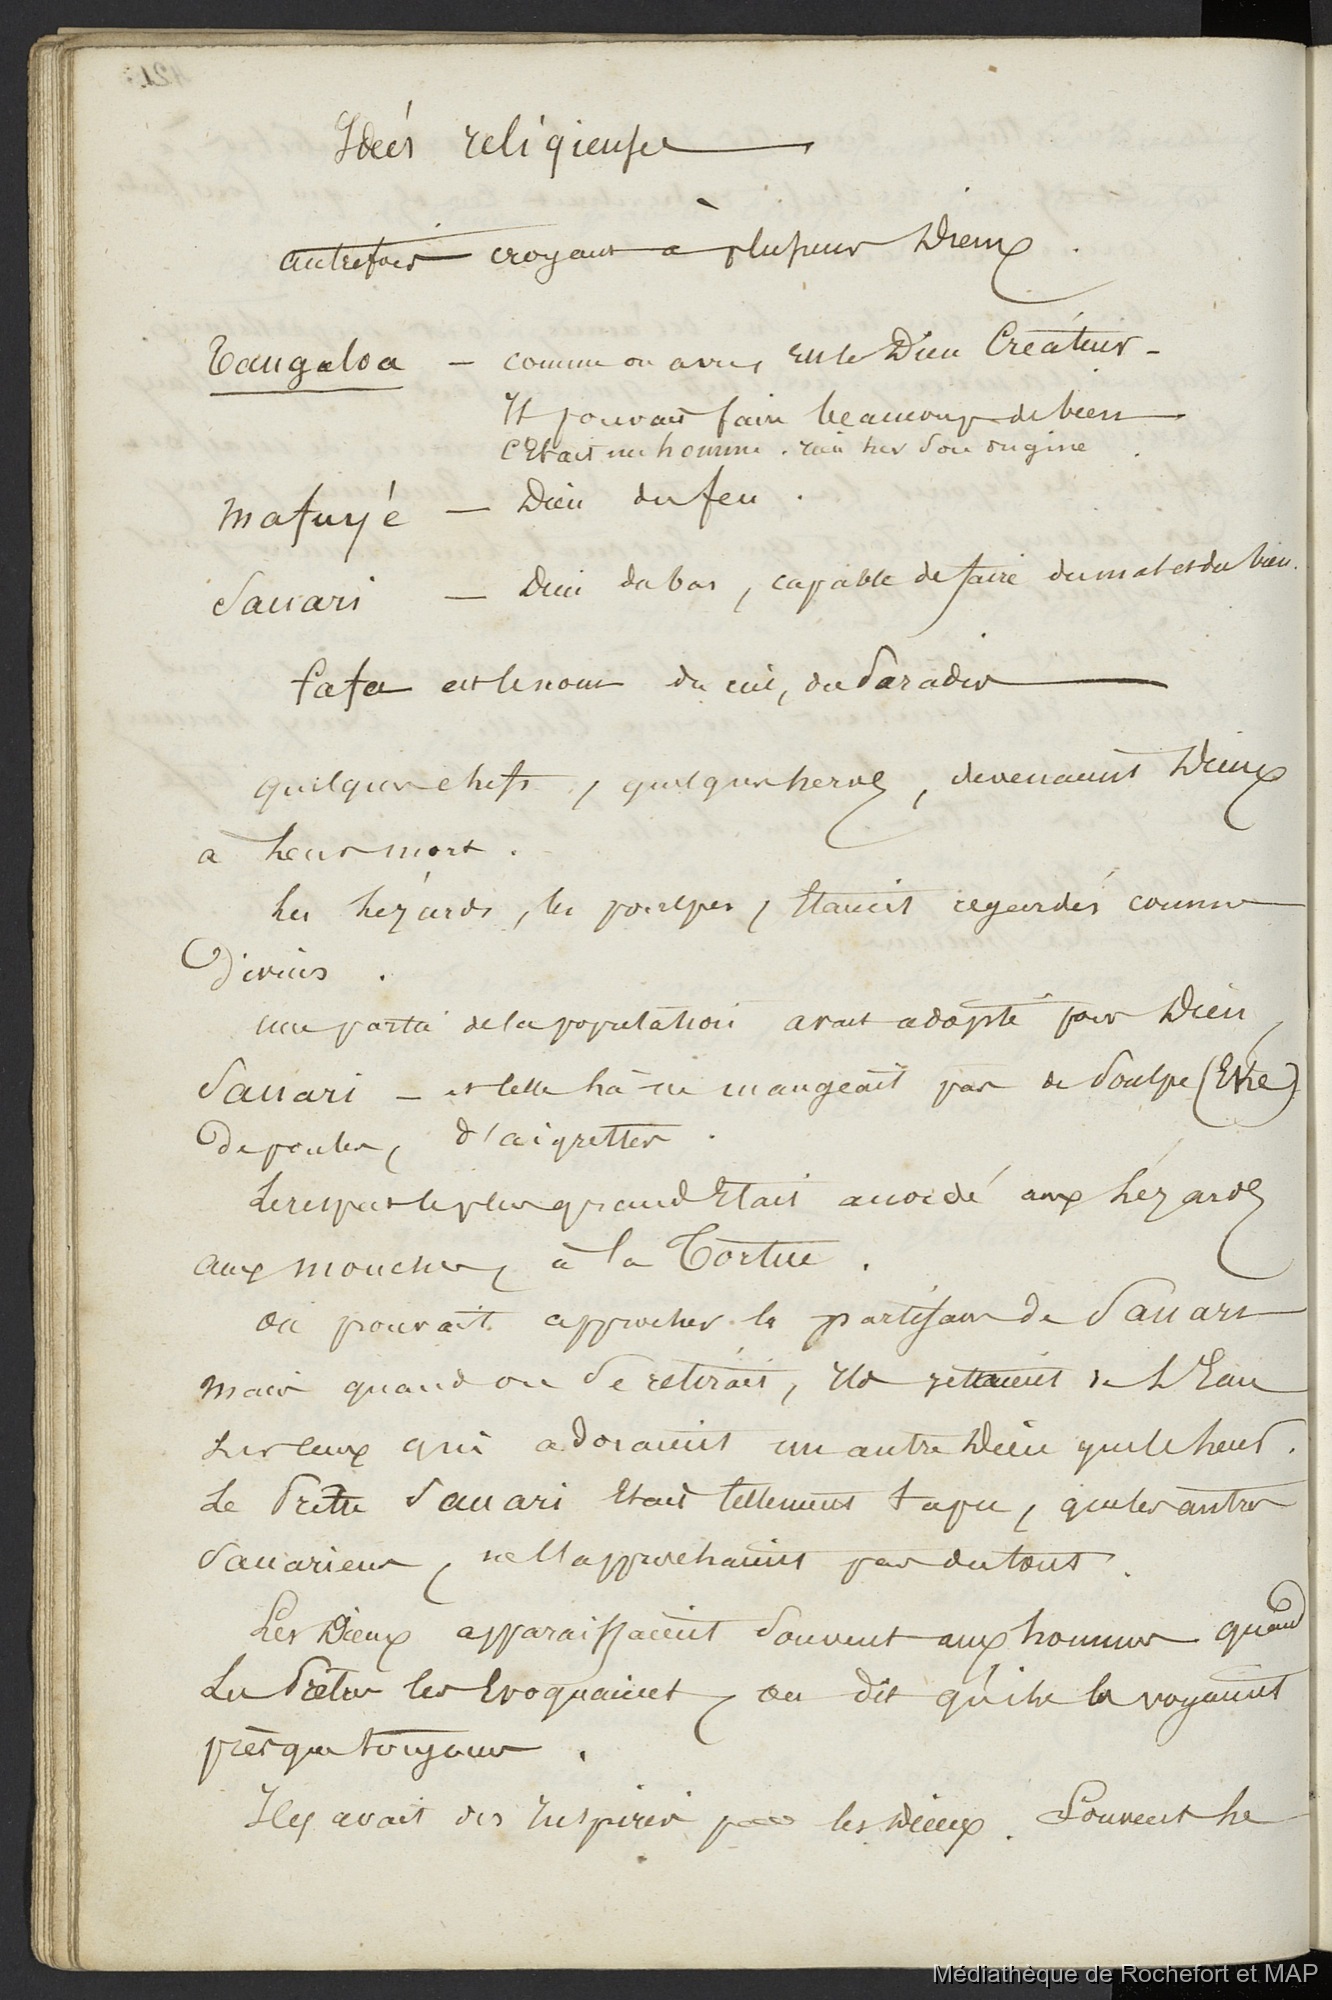 Idées religieuses
autrefois croyant à plusieurs Dieux.
Tangaloa — comme on avu, Est le Dieu Créateur -
Il pouvait faire beaucoup de bien
C'Etait un homme. rien sur son origine.
Mafuyé — Dieu du feu.
Sauari — Dieu du bas, capable de faire du mal et du bien.
fafa est le nom du ciel, du Paradis
quelques chefs, quelques heros, devenaient Dieux
a leur mort.
Les lézards, les poulpes, Etaient regardés comme
Divins.
une partie de la population avait adopté pour Dieu,
Sauari — et celle là ne mangeait pas de Poulpe (Eke)
De poules, d'aigrettes.
Le respect le plus grand Etait accordé aux lézards
aux mouches, à la Tortue.
on pouvait approcher les partisans de Sauari
mais quand on se retirait, Ils jettaient de l'Eau
sur ceux qui adoraient un autre Dieu que le leur.
Le Prêtre Sauari Etait tellement tapu, que les autres
Sauariens, ne l'approchaient pas du tout.
Les Dieux apparaissaient souvent aux hommes quand
Les Prêtres les Evoquaient, on dit qu'ils les voyaient
presque toujours.
Il y avait des Inspirés par les Dieux. Souvent le
Médiathèque de Rochefort et MAP